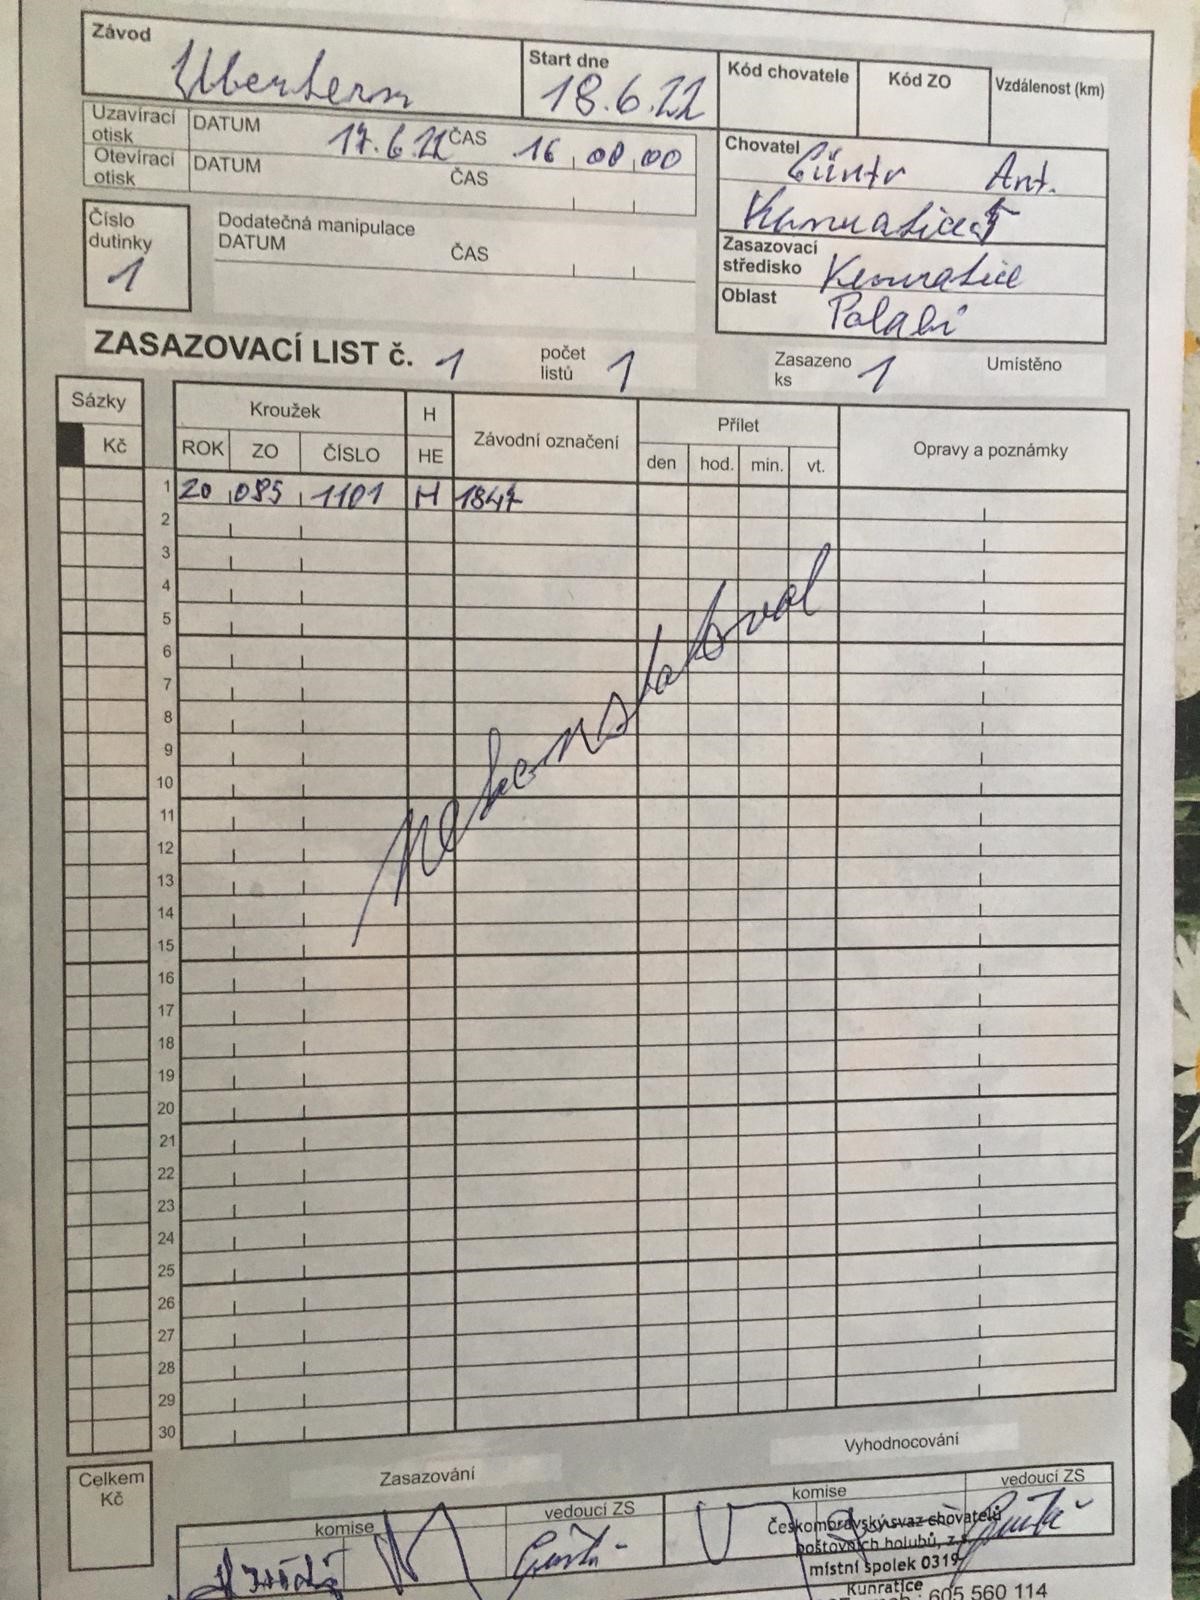 Závod
Start dne
Kód chovatele
Kód ZO
Vzdálenost (km)
18.6.22
Uzavírací otisk
DATUM
17.6.22
ČAS
16 00 00
Otevírací otisk
DATUM
ČAS
Chovatel
Ant.
Číslo dutinky
1
Dodatečná manipulace
DATUM
ČAS
Zasazovací středisko
Oblast
Polabí
ZASAZOVACÍ LIST č. 1
počet listů 1
Zasazeno ks 1
Umístěno
Sázky
Kč
Kroužek
H
HE
Závodní označení
Přílet
Opravy a poznámky
ROK
ZO
ČÍSLO
den
hod.
min.
vt.
1 20 085 1101 H 1847
2
3
4
5
6
7
8
9
10
11
12
13
14
15
16
17
18
19
20
21
22
23
24
25
26
27
28
29
30
Nekonstatoval
Celkem Kč
Zasazování
Vyhodnocování
komise
vedoucí ZS
komise
vedoucí ZS
Českomoravský svaz chovatelů
poštovních holubů, z.s.
místní spolek 0319
Kunratice
605 560 114